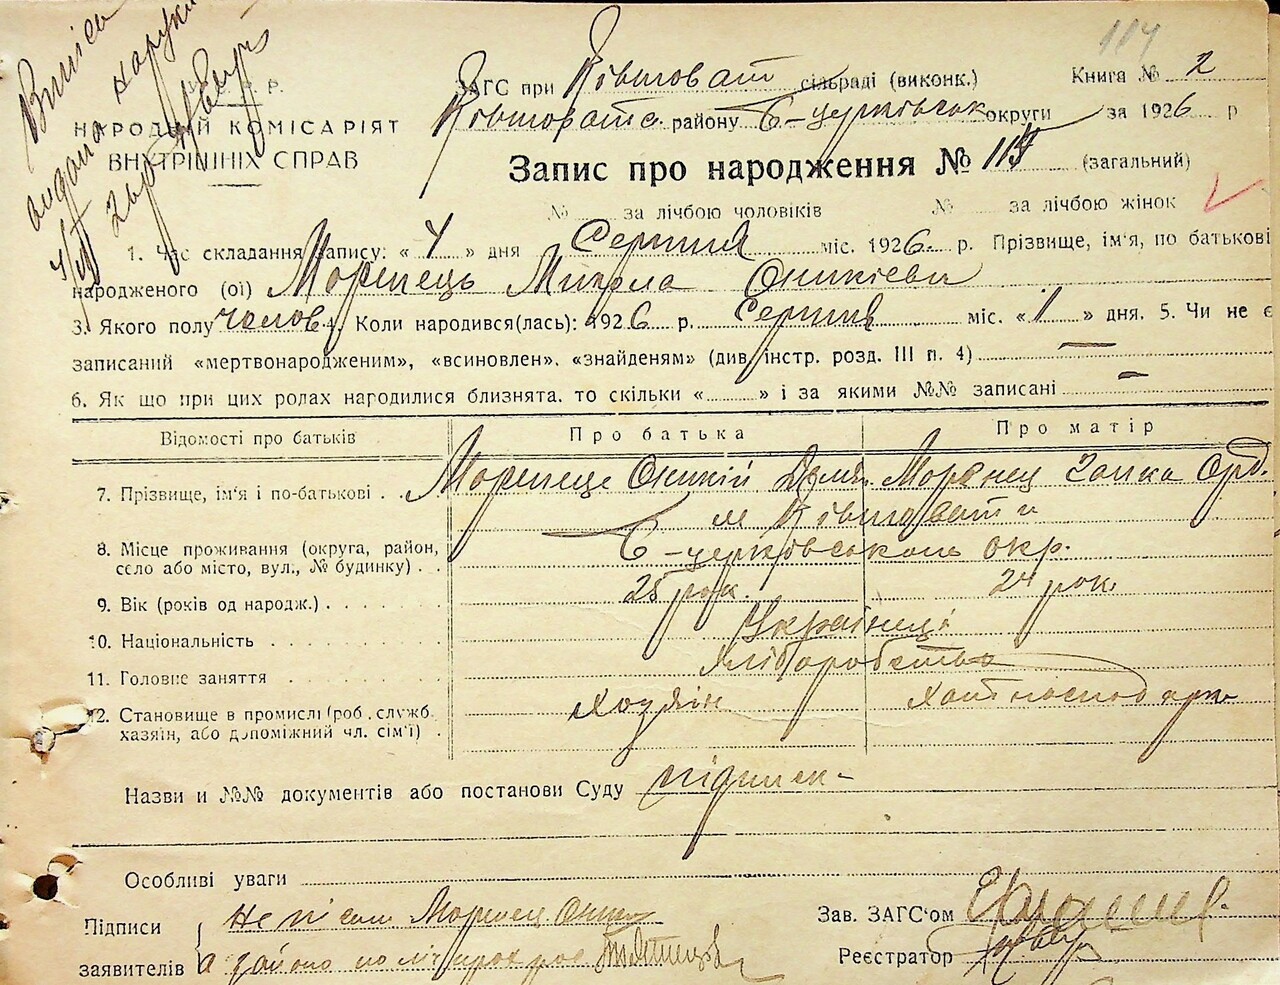 114
У. С. Р. Р.
НАРОДНІЙ КОМІСАРІЯТ
ВНУТРІШНІХ СПРАВ
ЗАГС при Ківшоват сільраді (виконк.) Книга № 2
Ківшоватс. району Б-церківськ округи за 1926 р
Запис про народження № 119 (загальний)
№ за лічбою чоловіків № за лічбою жінок
1. Час складання запису: « 4 » дня Серпня міс. 1926 р. Прізвище, ім'я, по батькові
народженого (ої) Моринець Микола Оникієви
3. Якого полу чолов. 4. Коли народився(лась): 1926 р. Серпня міс. « 1 » дня. 5. Чи не є
записаний «мертвонародженим», «всиновлен». «знайденям» (див. інстр. розд. III п. 4) —
6. Як що при цих родах народилися близнята. то скільки « » і за якими №№ записані —
Відомості про батьків Про батька Про матір
7. Прізвище, ім'я і по-батькові Моринець Оникій Моринец Ганка
м Ківшовати
8. Місце проживання (округа, район, село або місто, вул., № будинку) Б-церківської окр.
9. Вік (років од народж.) 25 рок. 24 рок.
10. Національність Українці
11. Головне заняття хліборобство
12. Становище в промислі (роб., служб. хазяїн, або допоміжний чл. сім'ї) Хозяїн Хатн господарк
Назви и №№ документів або постанови Суду підписк-
Особливі уваги
Підписи заявителів Не пісьм Моринец Оник
а за його
Зав. ЗАГС'ом
Реєстратор